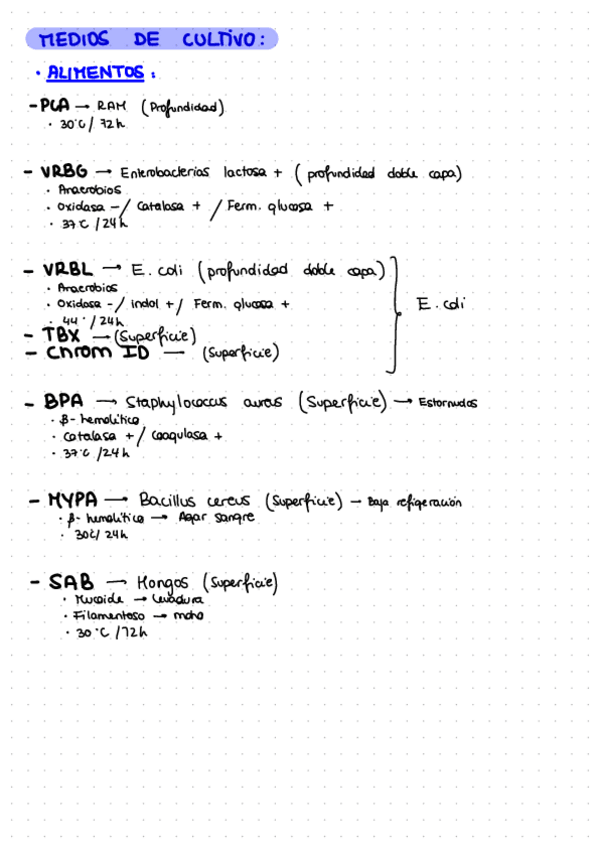 MEDIOS DE CULTIVO:
· ALIMENTOS:
- PCA → RAM (Profundidad)
· 30°C / 72h
- VRBG → Enterobacterias lactosa + (profundidad doble capa)
· Anaerobios
· Oxidasa - / Catalasa + / Ferm. glucosa +
· 37°C / 24h
- VRBL → E. coli (profundidad doble capa)
· Anaerobios
· Oxidasa - / indol + / Ferm. glucosa +
· 44° / 24h
- TBX → (Superficie)
- Chrom ID — (Superficie)
E. coli
- BPA → Staphylococcus aureus (Superficie) → Estornudos
· β- hemolítico
· Catalasa + / Coagulasa +
· 37°C / 24h
- MYPA → Bacillus cereus (Superficie) - Baja refigeración
· β- hemolítico → Agar sangre
· 30C / 24h
- SAB → Hongos (Superficie)
· Mucoide → Levadura
· Filamentoso → moho
· 30°C / 72h